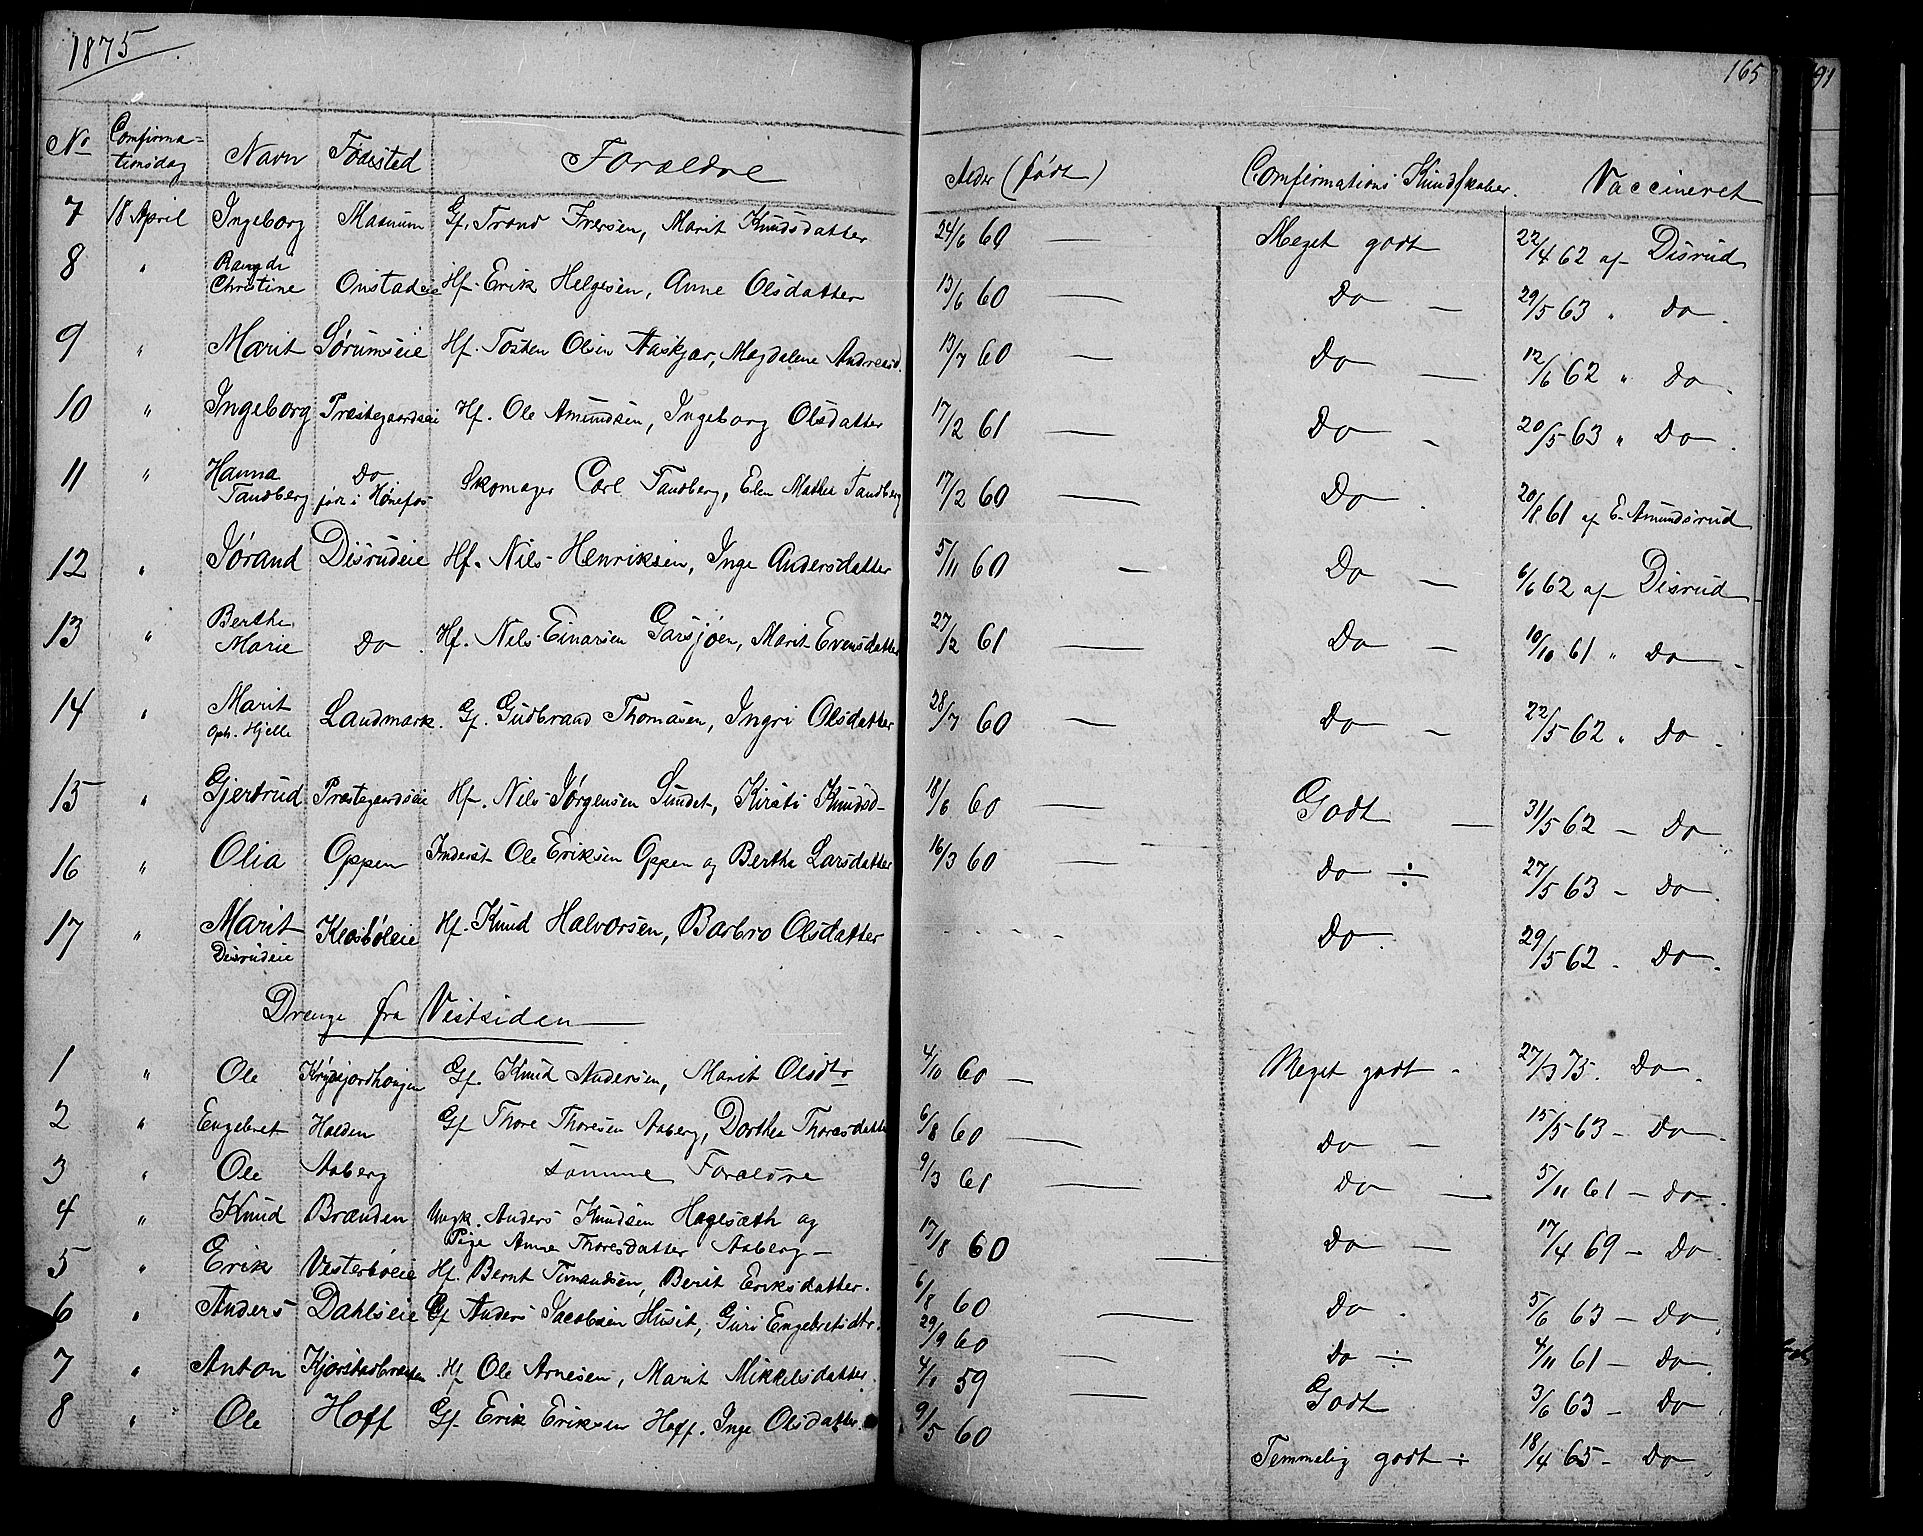 1875
165
91
No Comfirma-tionsdag Navn Fødested Forældre Alder (født) Comfirmations Kundskaber. Vaccineret
7 18 April Ingeborg Gf. Trond Iversen, Marit Knudsdatter 24/6 60 — Meget godt 22/4 62 af Disrud
8 " Rangdi Christine Onstadeie Hf. Erik Helgesen, Anne Olsdatter 13/6 60 — Do — 29/5 63 " Do.
9 " Marit Sørumseie Hf. Tosten Olsen Aaskjær, Magdalene Andreasd. 13/7 60 — Do — 12/6 62 " Do.
10 " Ingeborg Præstegaardseie Hf. Ole Amundsen, Ingeborg Olsdatter 17/2 61 — Do — 20/5 63 " Do.
11 " Hanna Tandberg Do født i Hønefos Skomager Carl Tandberg, Elen Mathea Tandberg 17/2 60 — Do. 20/8 61 af E. Amundsrud
12 " Jørand Disrudeie Hf. Nils Henriksen, Inge Andersdatter 5/11 60 — Do — 6/6 62 af Disrud
13 " Berthe Marie Do. Hf. Nils Einarsen Garsjøen, Marit Evensdatter 27/2 61 — Do — 10/10 61 " Do —
14 " Marit Oph. Hjelle Landmark. Gf. Gudbrand Thomasen, Ingri Olsdatter 28/7 60 — Do — 22/5 62 " Do.
15 " Gjertrud Præstegaardseie Hf. Nils Jørgensen Sundet, Kirsti Knudsd- 18/6 60 — Godt — 31/5 62 — Do
16 " Olia Oppen Inderst Ole Eriksen Oppen og Berthe Larsdatter 16/3 60 — Do ÷ 27/5 63 — Do
17 " Marit Disrudeie Hf. Knud Halvorsen, Barbro Olsdatter Do. 29/5 62. Do.
Drenge fra Vestsiden
1 " Ole Gf. Knud Andersen, Marit Olsdtr 4/10 60 — Meget godt - 27/3 75. Do.
2 " Engebret Halden Gf Thore Thoresen Aaberg, Dorthea Thoresdatter 6/8 60 — Do — 15/5 63 — Do.
3 " Ole Aaberg samme Forældre 9/3 61 — Do — 5/11 61 — Do.
4 " Knud Brænden Ungk. Anders Knudsen Hagesæth og
Pige Anne Thoresdatter Aaberg — 17/8 60 — Do — 17/4 69 — Do.
5 " Erik Vesterbøeie Hf. Bernt Berit Eriksdatter. 6/8 60 — Do. 5/6 63 — Do.
6 " Anders Dahlseie Gf Anders Jacobsen Guri Engebretsdtr. 29/9 60 — Do ÷ 4/11 61 — Do.
7 " Anton Hf Ole Arnesen, Marit Mikkelsdatter. 59 — Godt 3/6 63 — Do
8 " Ole Hoff Gf. Erik Eriksen Hoff. Inge Olsdatter 9/5 60 Temmelig godt ÷ 18/4 65 — Do.